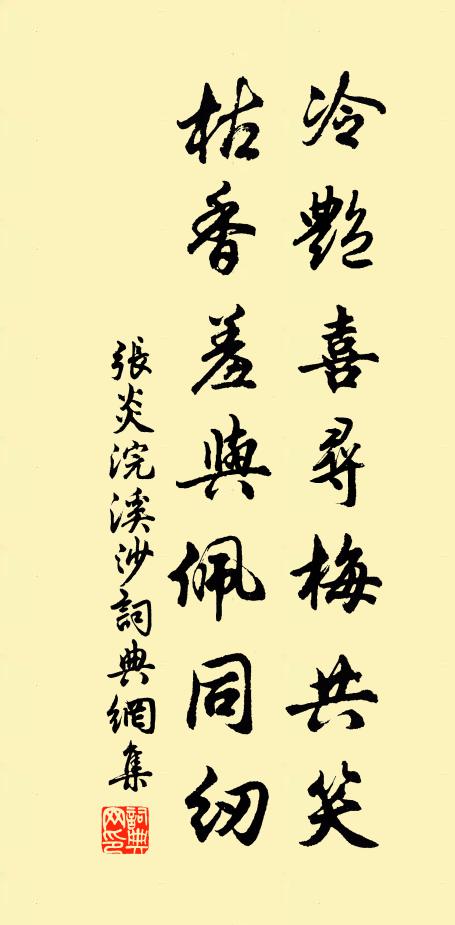 冷艷喜尋梅共笑
枯香羞與佩同紉
張炎浣溪沙詞典網集
詞典网印